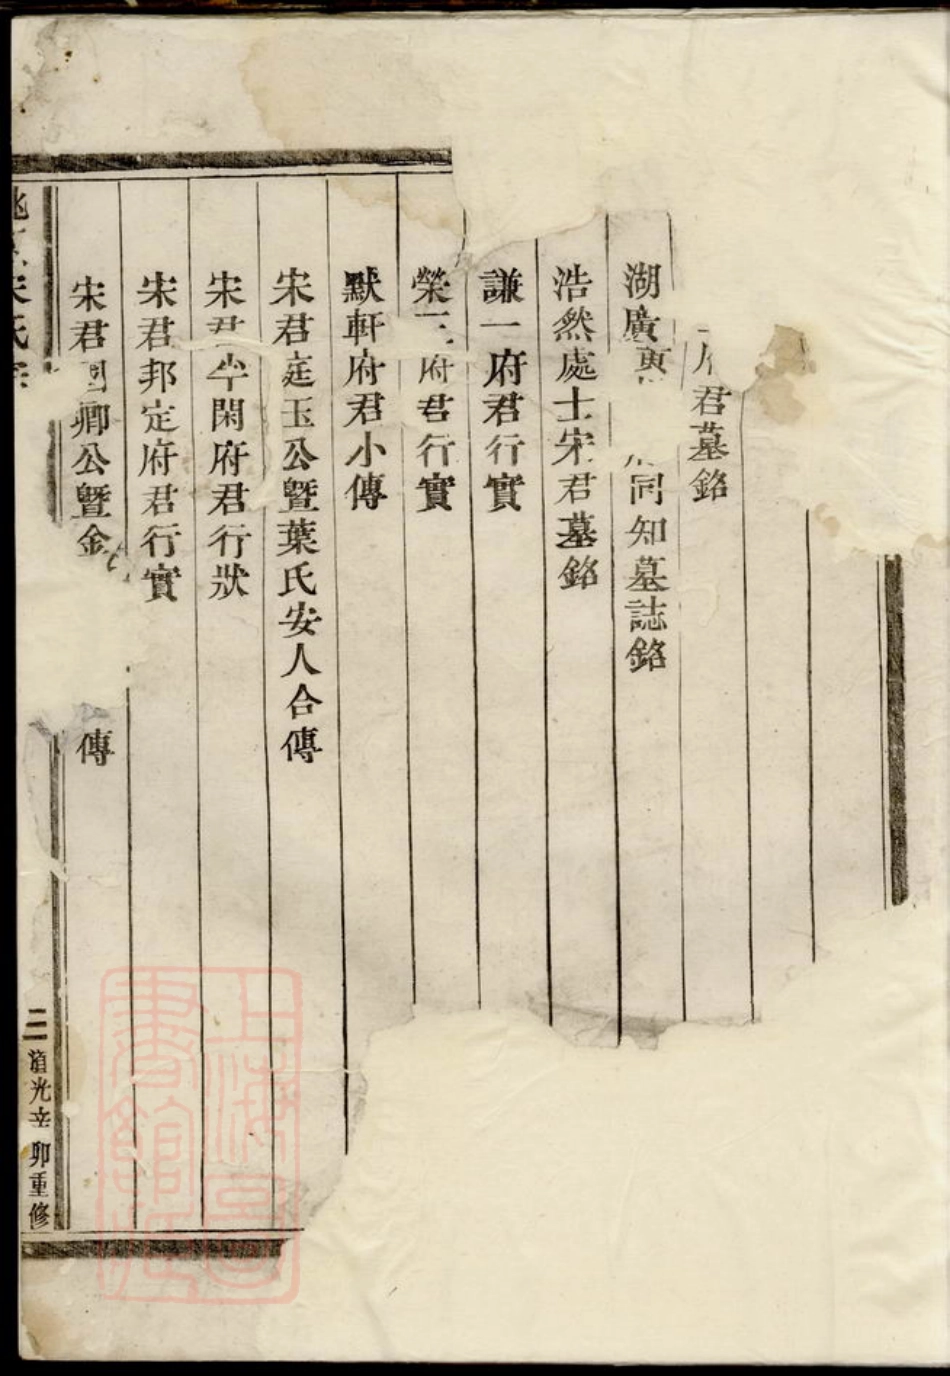 君墓銘
湖廣 同知墓誌銘
浩然處士宋君墓銘
謙一府君行實
榮 府君行實
默軒府君小傳
宋君庭玉公暨葉氏安人合傳
宋君 閑府君行狀
宋君邦定府君行實
宋君 卿公暨金 傳
宋氏宗
三 道光辛卯重修
上海圖書館藏